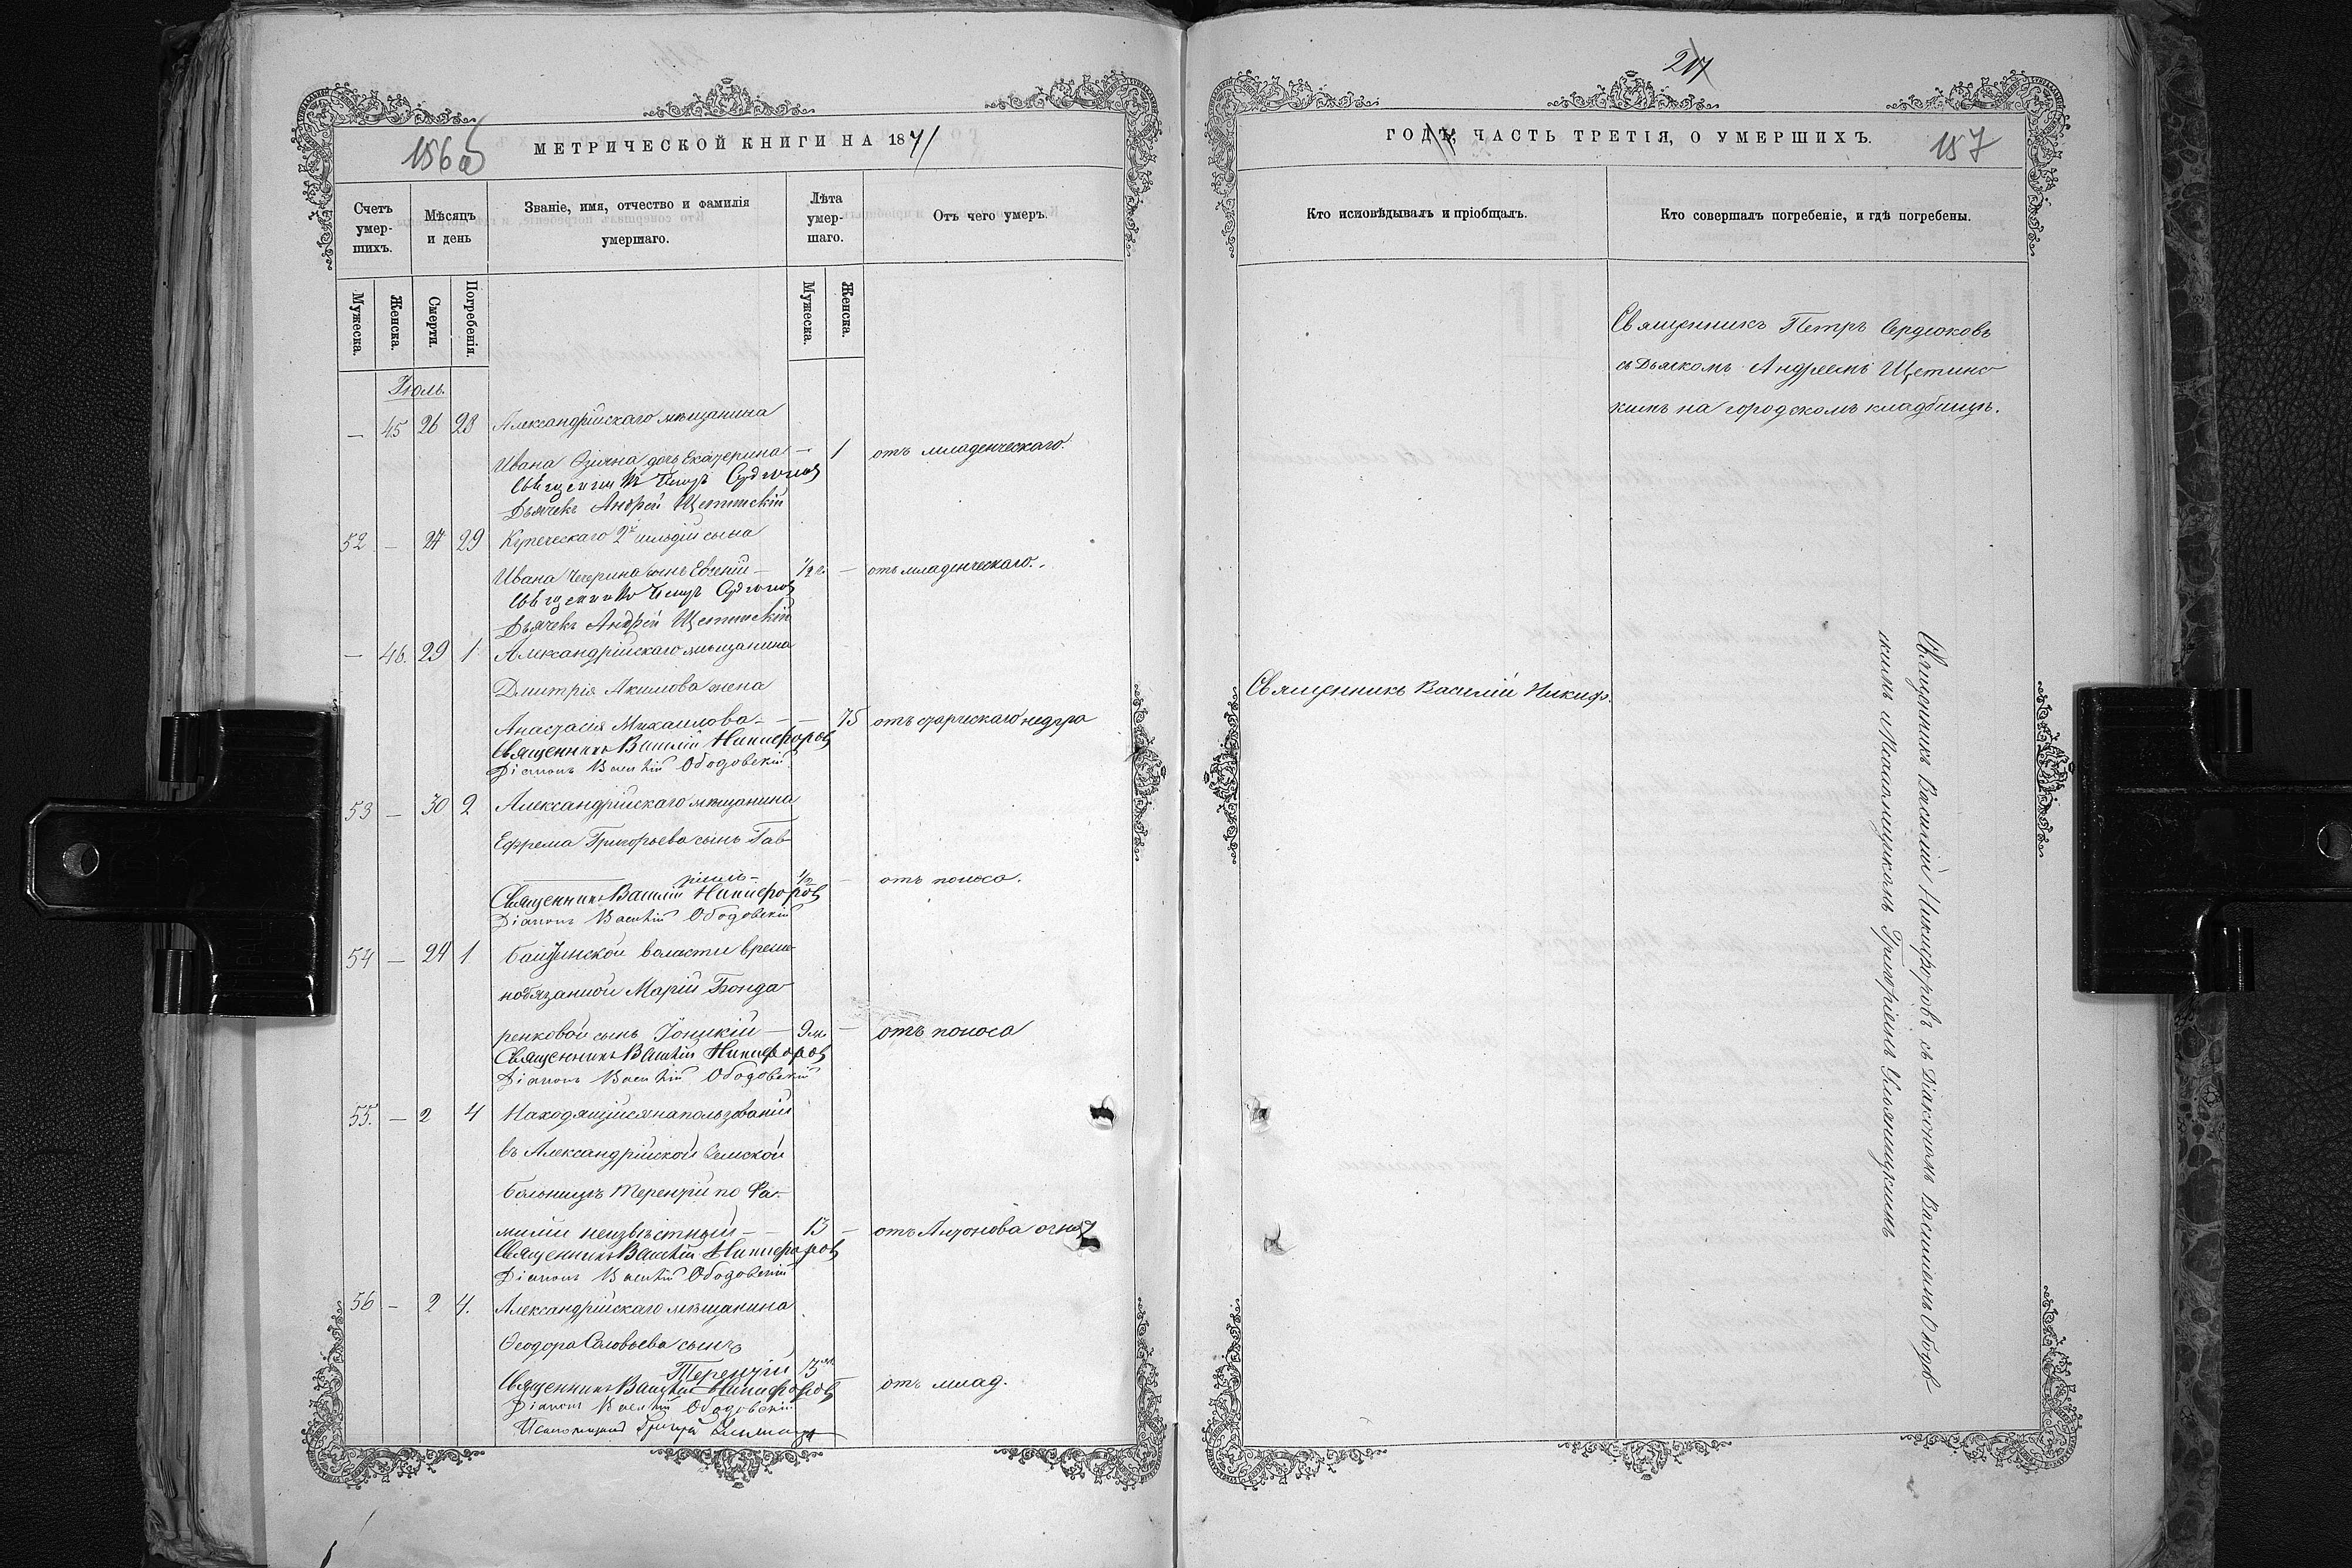 156 об
МЕТРИЧЕСКОЙ КНИГИ НА 1871
Счетъ умер-шихъ.
Мѣсяцъ и день
Званіе, имя, отчество и фамилія умершаго.
Лѣта умер-шаго.
Отъ чего умеръ.
Мужеска.
Женска.
Смерти.
Погребенія.
Мужеска.
Женска.
Іюль
— 45 26 28 Александрійскаго мѣщанина
Ивана дочь Екатерина — 1 отъ младенческаго.
Священникъ Петръ Сердюковъ
Дьячекъ Андрей Щетинскій
52 — 27 29 Купеческаго 2й гильдіи сына
Ивана Чечерина сынъ Евгеній — 1/2 г. — отъ младенческаго.
Священникъ Петръ Сердюковъ
Дьячекъ Андрей Щетинскій
— 46. 29 1 Александрійскаго мѣщанина
Дмитрія Акимова жена
Анастасія Михаилова — — 75 отъ старческаго
Священникъ Василій Никифоровъ
Діаконъ Василій Ободовскій
53 — 30 2 Александрійскаго мѣщанина
Ефрема Григорьева сынъ Гав-
ріилъ — 1/2 — отъ поноса.
Священникъ Василій Никифоровъ
Діаконъ Василій Ободовскій
54 — 24 1 волости време-
нобязанной Маріи Бонда-
ренковой сынъ — 9 м. — отъ поноса
Священникъ Василій Никифоровъ
Діаконъ Василій Ободовскій
55. — 2 4 Находящійся на пользованіи
въ Александрійской Земской
больницѣ Терентій по Фа-
миліи неизвѣстный — — 13 — отъ Антонова огня
Священникъ Василій Никифоровъ
Діаконъ Василій Ободовскій
56 — 2 4. Александрійскаго мѣщанина
Ѳеодора Соловьева сынъ
Терентій 3 м.
Священникъ Василій Никифоровъ отъ млад.
Діаконъ Василій Ободовскій
Григорій
217
ГОДЪ, ЧАСТЬ ТРЕТІЯ, О УМЕРШИХЪ.
157
Кто исповѣдывалъ и пріобщалъ.
Кто совершалъ погребеніе, и гдѣ погребены.
Священникъ Петръ Сердюковъ
съ Дьячкомъ Андреемъ Щетинс-
кимъ на городскомъ кладбищѣ.
Священникъ Василій Никиф.
Священникъ Василій Никифоровъ съ Діакономъ Василіемъ Ободов-
скимъ и Псаломщикомъ Григоріемъ